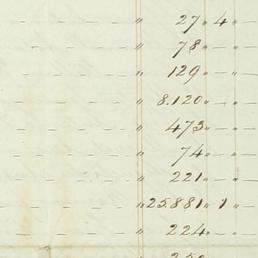 " 27 " 4 "
" 78 " — "
" 129 " — "
" 8.120 " — "
" 473 " — "
" 74 " — "
" 221 " — "
" 25.881 " 1 "
" 224 " — "